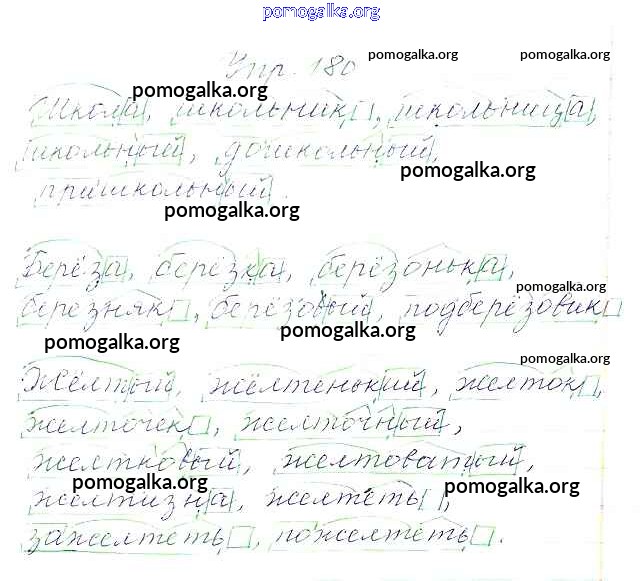 pomogalka.org
Упр. 180
pomogalka.org pomogalka.org
pomogalka.org
Школа, школьник, школьница,
школьный, дошкольный,
pomogalka.org
пришкольный.
pomogalka.org
Берёза, берёзка, берёзонька,
pomogalka.org
березняк, берёзовый, подберёзовик
pomogalka.org pomogalka.org
pomogalka.org
Жёлтый, жёлтенький, желток,
желточек, желточный,
желтковый, желтоватый,
pomogalka.org pomogalka.org
желтизна, желтеть,
зажелтеть, пожелтеть.